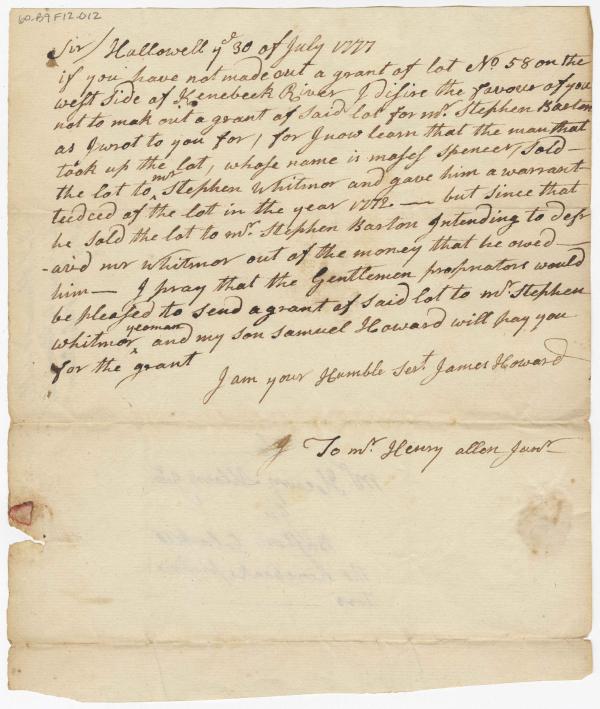 60.B9F12.012
Sir/ Hallowell ye 30 of July 1777
if you have not made out a grant of lot No 58 on the
west side of Kenebeck River I disire the favour of you
not to mak out a grant of said lot for mr. Stephen Barton
as I wrot to you for, for I now learn that the man that
took up the lot, whose name is moses spencer, sold
the lot to mr. Stephen Whitmor and gave him a warrant
teedced of the lot in the year 1772. — but since that
he sold the lot to mr. Stephen Barton Intending to defr
-aved mr whitmor out of the money that he owed —
him — I pray that the Gentlemen propriators would
be pleased to send a grant of said lot to mr. Stephen
whitmor yeoman and my son samuel Howard will pay you
for the grant
I am your Humble Sert. James Howard
To mr. Henry allen Junr